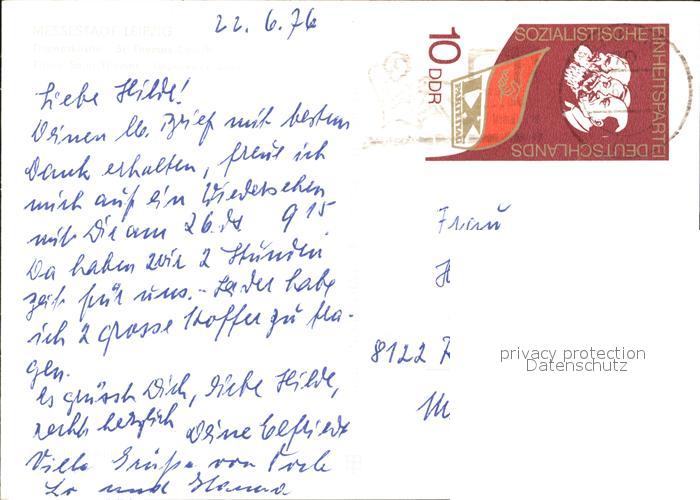 22.6.76
MESSESTADT LEIPZIG
Liebe Hilde!
Deinen lb. Brief mit bestem
Dank erhalten, freue ich
mich auf ein Wiedersehen
mit Dir am 26. ds 9 15
Da haben wir 2 Stunden
Zeit für uns. - Leider habe
ich 2 grosse Koffer zu tra-
gen.
Es grüsst Dich, liebe Hilde,
recht herzlich Deine Elfriede
Viele Grüße von
und
10 DDR
SOZIALISTISCHE EINHEITSPARTEI
DEUTSCHLANDS
IX
PARTEITAG
Frau
H
8122
M
privacy protection
Datenschutz